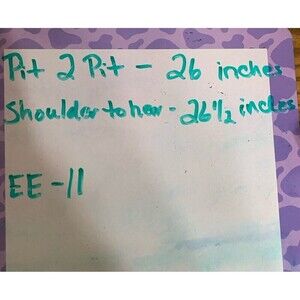 Pit 2 Pit - 26 inches
Shoulder to hem - 26 1/2 inches
EE - 11